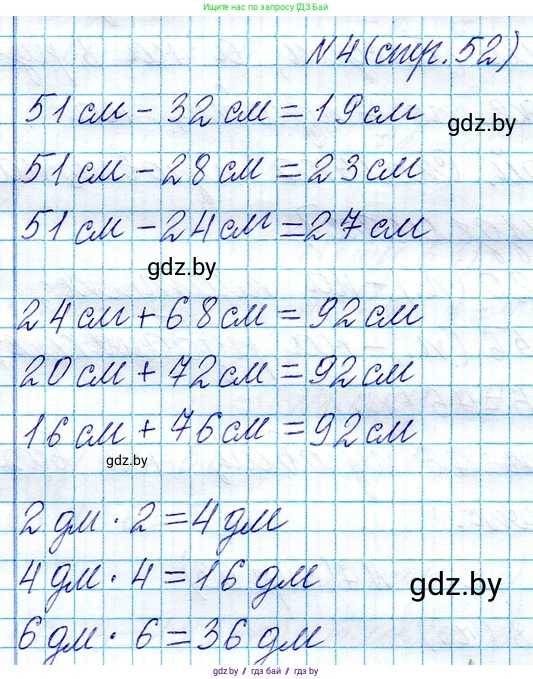 Ищите нас в поиске по запросу ГДЗ Бай
№4 (стр. 52)
51 см - 32 см = 19 см
gdz.by
51 см - 28 см = 23 см
51 см - 24 см = 27 см
gdz.by
24 см + 68 см = 92 см
20 см + 72 см = 92 см
16 см + 76 см = 92 см
gdz.by
2 дм · 2 = 4 дм
4 дм · 4 = 16 дм
gdz.by
6 дм · 6 = 36 дм
gdz.by / гдз бай / gdz.by